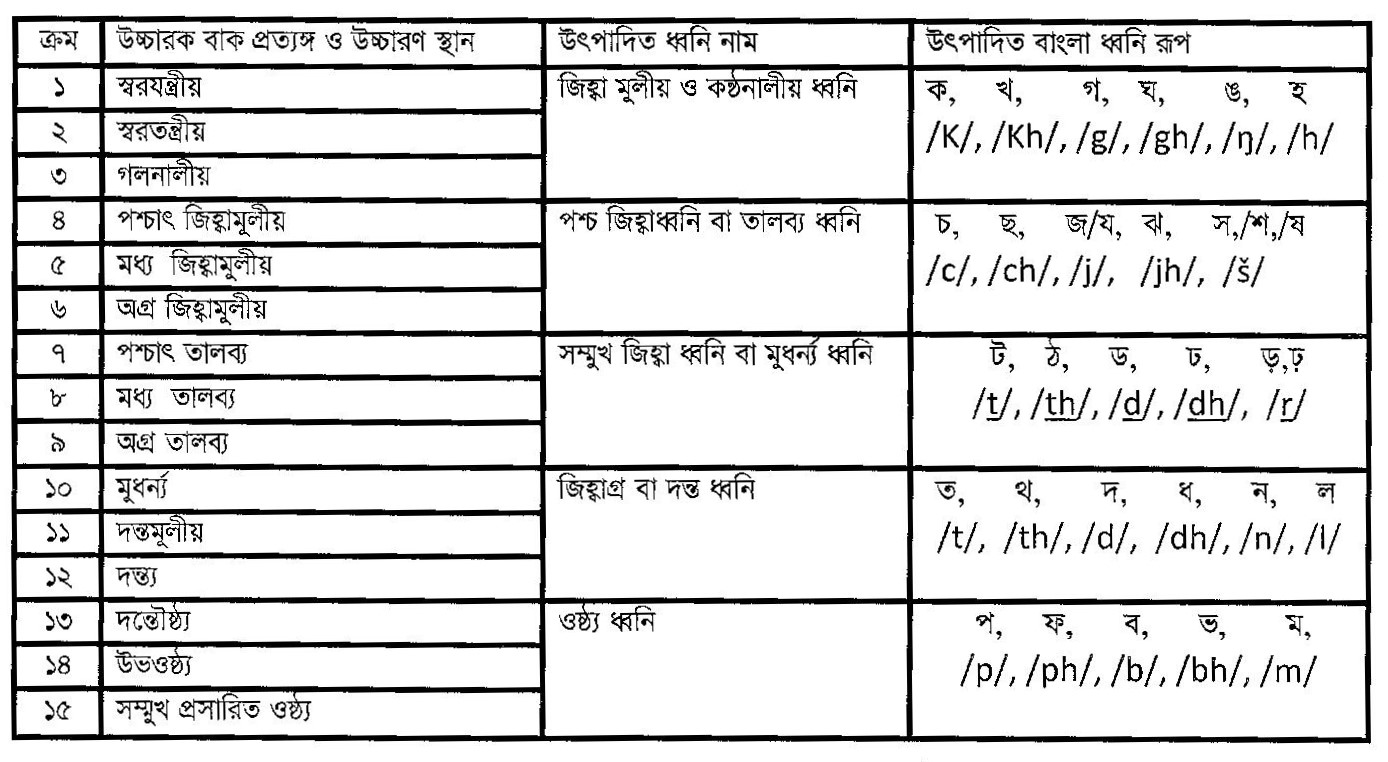 ক্রম উচ্চারক বাক প্রত্যঙ্গ ও উচ্চারণ স্থান উৎপাদিত ধ্বনি নাম উৎপাদিত বাংলা ধ্বনি রূপ
১ স্বরযন্ত্রীয় জিহ্বা মূলীয় ও কণ্ঠনালীয় ধ্বনি ক, খ, গ, ঘ, ঙ, হ
২ স্বরতন্ত্রীয় /K/, /Kh/, /g/, /gh/, /ŋ/, /h/
৩ গলনালীয়
৪ পশ্চাৎ জিহ্বামূলীয় পশ্চ জিহ্বাধ্বনি বা তালব্য ধ্বনি চ, ছ, জ/য, ঝ, স,/শ,/ষ
৫ মধ্য জিহ্বামুলীয় /c/, /ch/, /j/, /jh/, /š/
৬ অগ্র জিহ্বামুলীয়
৭ পশ্চাৎ তালব্য সম্মুখ জিহ্বা ধ্বনি বা মুধর্ন্য ধ্বনি ট, ঠ, ড, ঢ, ড়,ঢ়
৮ মধ্য তালব্য /t/, /th/, /d/, /dh/, /r/
৯ অগ্র তালব্য
১০ মুধর্ন্য জিহ্বাগ্র বা দন্ত ধ্বনি ত, থ, দ, ধ, ন, ল
১১ দন্তমূলীয় /t/, /th/, /d/, /dh/, /n/, /l/
১২ দন্ত্য
১৩ দন্তৌষ্ঠ্য ওষ্ঠ্য ধ্বনি প, ফ, ব, ভ, ম,
১৪ উভওষ্ঠ্য /p/, /ph/, /b/, /bh/, /m/
১৫ সম্মুখ প্রসারিত ওষ্ঠ্য